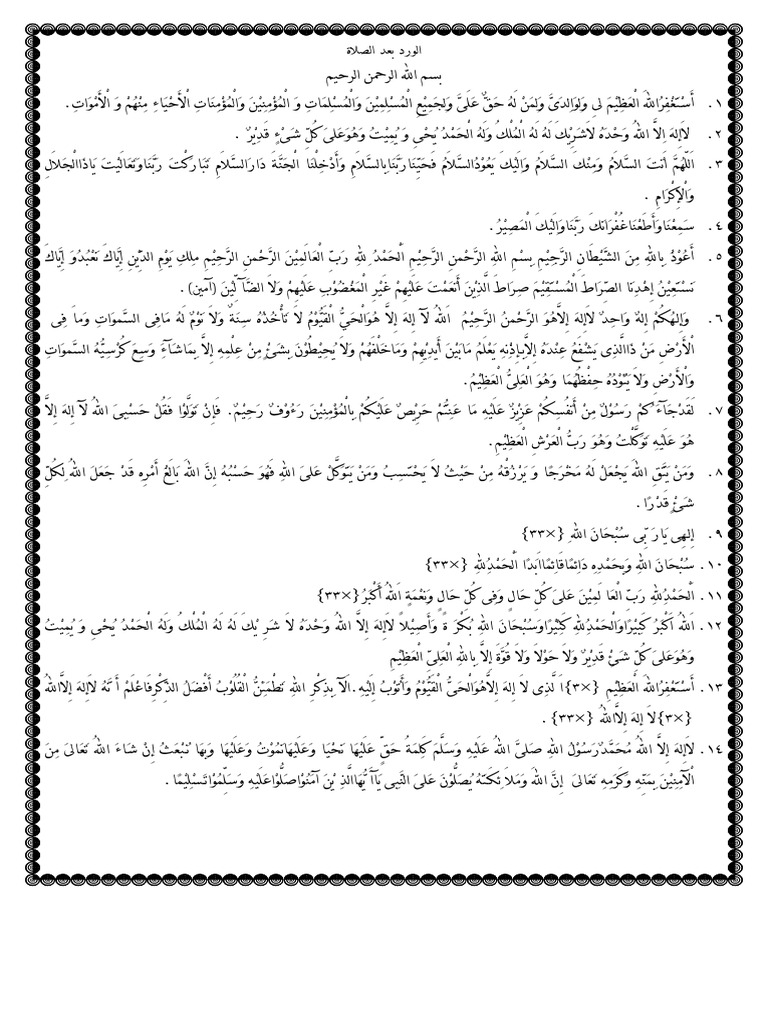 الورد بعد الصلاة
بسم الله الرحمن الرحيم
١. أَسْتَغْفِرُاللهَ الْعَظِيْمَ لىِ وَلِوَالِدَىَّ وَلِمَنْ لَهُ حَقٌّ عَلَىَّ وَلِجَمِيْعِ الْمُسْلِمِيْنَ وَالْمُسْلِمَاتِ وَ الْمُؤْمِنِيْنَ وَالْمُؤْمِنَاتِ الْأَحْيَاءِ مِنْهُمْ وَ الْأَمْوَاتِ .
٢. لاَإِلهَ إِلاَّ اللهُ وَحْدَهُ لاَشَرِيْكَ لَهُ لَهُ الْمُلْكُ وَلَهُ الْحَمْدُ يُحْيِ وَ يُمِيْتُ وَهُوَعَلىَ كُلِّ شَىْءٍ قَدِيْرٌ .
٣. اَللّهُمَّ أَنْتَ السَّلاَمُ وَمِنْكَ السَّلاَمُ وَاِلَيْكَ يَعُوْدُالسَّلاَمُ فَحَيِّنَارَبَّنَابِالسَّلاَمِ وَأَدْخِلْنَا الْجَنَّةَ دَارَالسَّلاَمِ تَبَارَكْتَ رَبَّنَاوَتَعَالَيْتَ يَاذَاالْجَلاَلِ
وَالْاِكْرَامِ .
٤. سَمِعْنَاوَأَطَعْنَاغُفْرَانَكَ رَبَّنَاوَإِلَيْكَ الْمَصِيْرُ .
٥. أَعُوْذُ بِاللهِ مِنَ الشَّيْطَانِ الرَّجِيْمِ بِسْمِ اللهِ الرَّحْمنِ الرَّحِيْمِ اَلْحَمْدُ للهِ رَبِّ الْعَالَمِيْنَ الرَّحْمنِ الرَّحِيْمِ ملِكِ يَوْمِ الدِّيْنِ إِيَّاكَ نَعْبُدُوَ إِيَّاكَ
نَسْتَعِيْنُ إِهْدِنَا الصِّرَاطَ الْمُسْتَقِيْمَ صِرَاطَ الَّذِيْنَ أَنْعَمْتَ عَلَيْهِمْ غَيْرِ الْمَغْضُوْبِ عَلَيْهِمْ وَلاَ الضَّآلِّيْنَ (آمين) .
٦. وَاِلهُكُمْ اِلهٌ وَاحِدٌ لاَإِلهَ إِلاَّهُوَ الرَّحْمنُ الرَّحِيْمُ اَللهُ لآَ إِلهَ إِلاَّ هُوَالْحَيُّ الْقَيُّوْمُ لاَ تَأْخُذُهُ سِنَةٌ وَلاَ نَوْمٌ لَهُ مَافِى السَّموَاتِ وَماَ فِى
الْأَرْضِ مَنْ ذَاالَّذِى يَشْفَعُ عِنْدَهُ إِلاَّبِإِذْنِهِ يَعْلَمُ مَابَيْنَ أَيْدِيْهِمْ وَمَاخَلْفَهُمْ وَلاَ يُحِيْطُوْنَ بِشَىْءٍ مِنْ عِلْمِهِ إِلاَّ بِمَاشَآءَ وَسِعَ كُرْسِيُّهُ السَّموَاتِ
وَالْأَرْضِ وَلاَ يَئُوْدُهُ حِفْظُهُمَا وَهُوَ الْعَلِىُّ الْعَظِيْمُ.
٧. لَقَدْجَآءَكُمْ رَسُوْلٌ مِنْ أَنْفُسِكُمْ عَزِيْزٌ عَلَيْهِ مَا عَنِتُّمْ حَرِيْصٌ عَلَيْكُمْ بِالْمُؤْمِنِيْنَ رَءُوْفٌ رَحِيْمٌ. فَإِنْ تَوَلَّوْا فَقُلْ حَسْبِيَ اللهُ لآَ إِلهَ إِلاَّ
هُوَ عَلَيْهِ تَوَكَّلْتُ وَهُوَ رَبُّ الْعَرْشِ الْعَظِيْمِ.
٨. وَمَنْ يَتَّقِ اللهَ يَجْعَلْ لَهُ مَخْرَجًا وَ يَرْزُقْهُ مِنْ حَيْثُ لاَ يَحْتَسِبُ وَمَنْ يَتَوَكَّلْ عَلىَ اللهِ فَهُوَ حَسْبُهُ إِنَّ اللهَ بَالِغُ أَمْرِهِ قَدْ جَعَلَ اللهُ لِكُلِّ
شَىْءٍ قَدْرًا .
٩. إِلهِى يَارَبِّى سُبْحَانَ اللهِ {×٣٣}
١٠. سُبْحَانَ اللهِ وَبِحَمْدِهِ دَائِمًاقَائِمًااَبَدًا اَلْحَمْدُللهِ {×٣٣}
١١. اَلْحَمْدُللهِ رَبِّ الْعَا لَمِيْنَ عَلىَ كُلِّ حَالٍ وَفِى كُلِّ حَالٍ وَنِعْمَةٍ اَللهُ أَكْبَرُ{×٣٣}
١٢. اَللهُ اَكْبَرُ كَبِيْرًاوَالْحَمْدُللهِ كَثِيْرًاوَسُبْحَانَ اللهِ بُكْرَ ةً وَأَصِيْلاً لاَإِلهَ إِلاَّ اللهُ وَحْدَهُ لاَ شَرِ يْكَ لَهُ لَهُ الْمُلْكُ وَلَهُ الْحَمْدُ يُحْيِ وَ يُمِيْتُ
وَهُوَعَلىَ كُلِّ شَىْءٍ قَدِيْرٌ وَلاَ حَوْلاَ وَلاَ قُوَّةَ إِلاَّ بِاللهِ الْعَلِىِّ الْعَظِيْمِ
١٣. أَسْتَغْفِرُاللهَ الْعَظِيْمِ {×٣}اَ لَّذِى لاَ إِلهَ إِلاَّهُوَالْحَىُّ الْقَيُّوْمُ وَأَتُوْبُ إِلَيْهِ. اَلاَ بِذِكْرِ اللهِ تَطْمَئِنُّ الْقُلُوْبُ أَفْضَلُ الذِّكْرِفَاعْلَمْ أَ نَّهُ لاَإِلهَ إِلاَّاللهُ
{×٣}لاَ إِلهَ إِلاَّاللهُ {×٣٣} .
١٤. لاَإِلهَ إِلاَّ اللهُ مُحَمَّدٌرَسُوْلُ اللهِ صَلىَّ اللهُ عَلَيْهِ وَسَلَّمَ كَلِمَةُ حَقٍّ عَلَيْهَا نَحْيَا وَعَلَيْهَانَمُوْتُ وَعَلَيْهَا وَبِهَا نُبْعَثُ اِنْ شَاءَ اللهُ تَعَالىَ مِنَ
الْآمِنِيْنَ بِمَنِّهِ وَكَرَمِهِ تَعَالىَ إِنَّ اللهَ وَمَلاَ ئِكَتَهُ يُصَلُّوْنَ عَلىَ النَّبِى يَآأَ يُّهَاالَّذِ يْنَ آمَنُوْاصَلُّوْاعَلَيْهِ وَسَلِّمُوْاتَسْلِيْمًا .